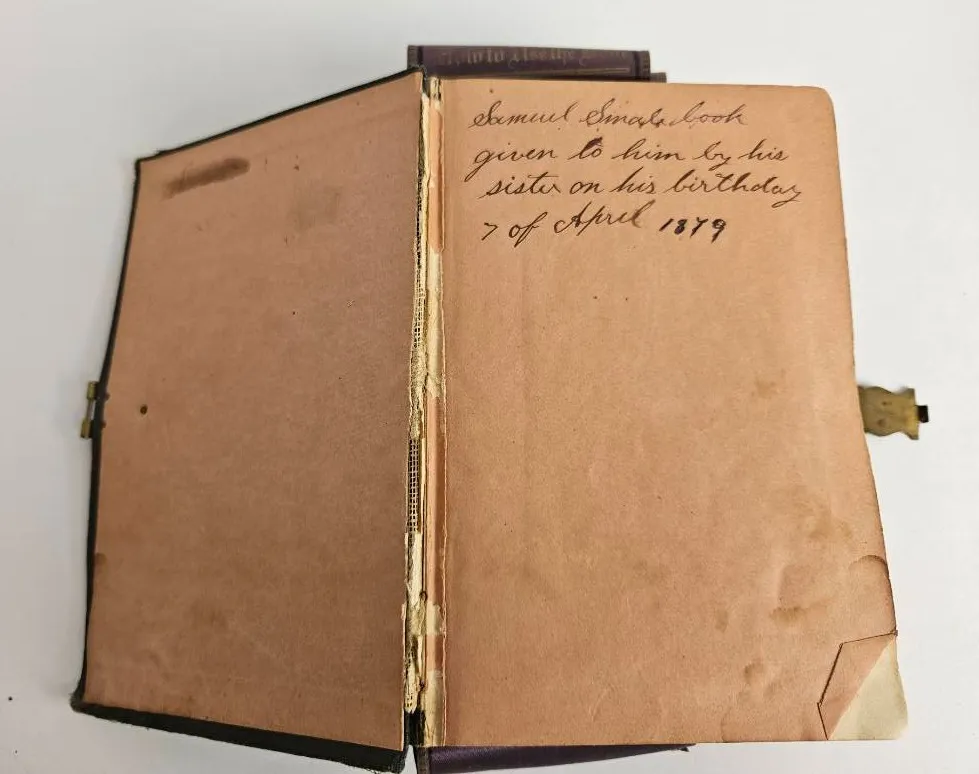 Samuel Smals book
given to him by his
sister on his birthday
7 of April 1879